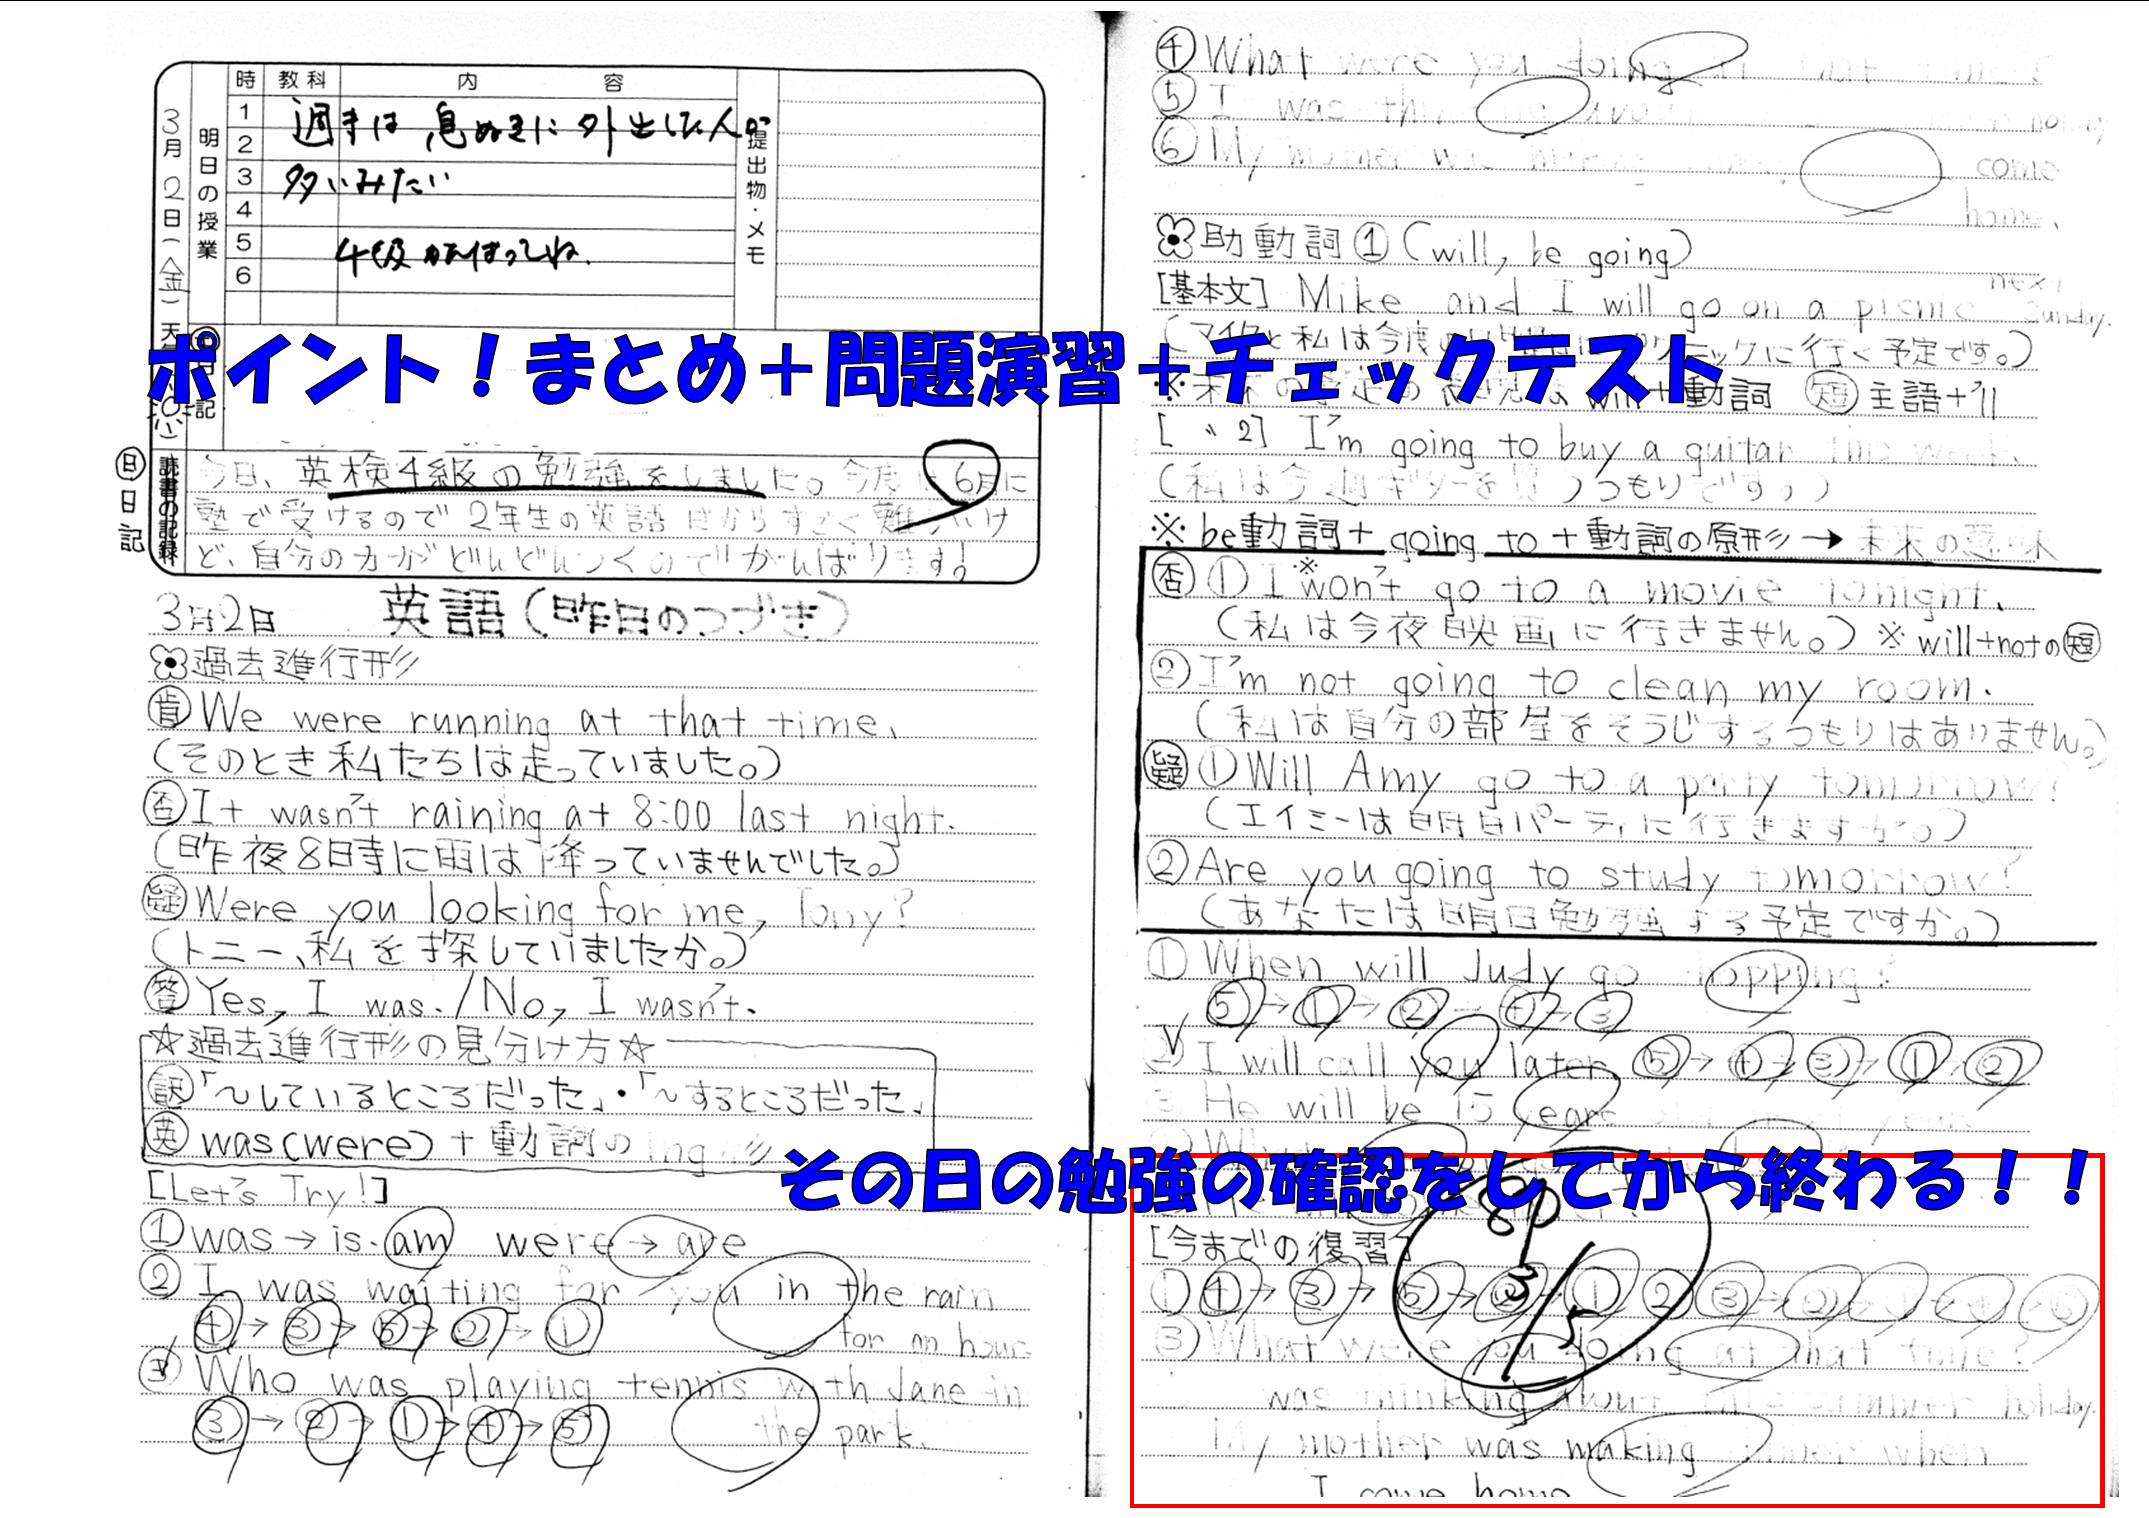 時 教科 内容
1
2
3
4
5
6
明日の授業
提出物・メモ
3月2日(金)
週末は息ぬきに外出した人が
多いみたい
4級がんばってね.
ポイント！まとめ＋問題演習＋チェックテスト
読書の記録
日 日記
今日、英検4級の勉強をしました。今度 6月に
塾で受けるので2年生の英語ばかりですごく難しいけ
ど、自分の力がどんどんつくのでがんばります!
3月2日 英語(昨日のつづき)
過去進行形
肯 We were running at that time.
(そのとき私たちは走っていました。)
否 It wasn't raining at 8:00 last night.
(昨夜8時に雨は降っていませんでした。)
疑 Were you looking for me, Tony?
(トニー、私を探していましたか。)
答 Yes, I was. / No, I wasn't.
☆過去進行形の見分け方☆
訳「〜しているところだった」・「〜するところだった」
英 was(were) + 動詞のing形
[Let's Try!]
① was → is・am were → are
② I was waiting for you in the rain
for an hour.
④→③→⑤→②→①
③ Who was playing tennis with Jane in
the park.
③→②→①→④→⑤
④ What were you doing at that time?
⑤ I was
⑥ My mother was making come
home.
助動詞①(will, be going)
[基本文] Mike and I will go on a picnic next Sunday.
(マイクと私は今度の ピクニックに行く予定です。)
will+動詞 短 主語+'ll
[〃2] I'm going to buy a guitar this week.
(私は今週ギターを買うつもりです。)
※ be動詞 + going to + 動詞の原形 → 未来の意味
否 ① I ※won't go to a movie tonight.
(私は今夜映画に行きません。) ※ will+notの短
② I'm not going to clean my room.
(私は自分の部屋をそうじするつもりはありません。)
疑 ① Will Amy go to a party tomorrow?
(エイミーは明日パーティに行きますか。)
② Are you going to study tomorrow?
(あなたは明日勉強する予定ですか。)
① When will Judy go shopping?
⑤→①→②→④→③
② I will call you later. ⑤→④→③→①→②
③ He will be 15 years
その日の勉強の確認をしてから終わる！！
8p
3/5
[今までの復習]
① ④→③→⑤→②→① ② ③
③ What were you doing at that time?
was thinking about holiday.
My mother was making dinner when
I come home.